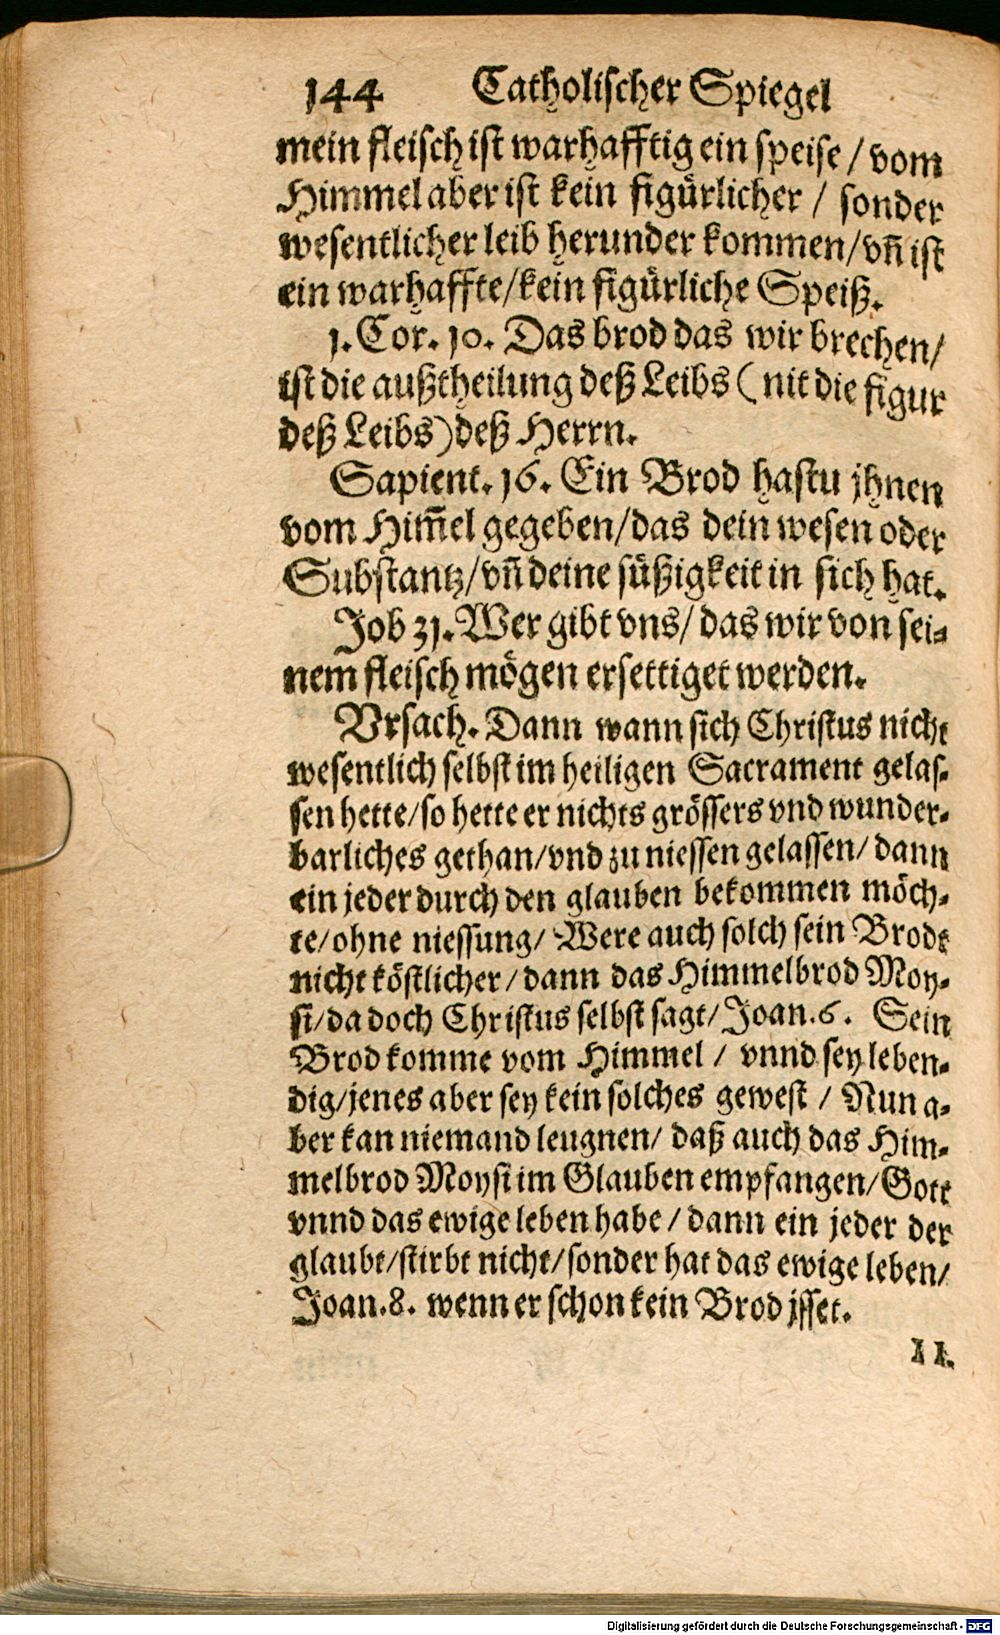 144 Catholischer Spiegel
mein fleisch ist warhafftig ein speise / vom
Himmel aber ist kein figürlicher / sonder
wesentlicher leib herunder kommen/ vn̄ ist
ein warhaffte/kein figürliche Speiß.
1. Cor. 10. Das brod das wir brechen/
ist die außtheilung deß Leibs ( nit die figur
deß Leibs) deß Herrn.
Sapient. 16. Ein Brod hastu jhnen
vom Him̄el gegeben/das dein wesen oder
Substantz/vn̄ deine süßigkeit in sich hat.
Job 31. Wer gibt vns/ das wir von sei-
nem fleisch mögen ersettiget werden.
Vrsach. Dann wann sich Christus nicht
wesentlich selbst im heiligen Sacrament gelas-
sen hette/so hette er nichts grössers vnd wunder-
barliches gethan/vnd zu niessen gelassen/ dann
ein jeder durch den glauben bekommen möch-
te/ohne niessung/ Were auch solch sein Brodt
nicht köstlicher/ dann das Himmelbrod Moy-
si/da doch Christus selbst sagt/ Joan. 6. Sein
Brod komme vom Himmel / vnnd sey leben-
dig/jenes aber sey kein solches gewest / Nun a-
ber kan niemand leugnen/ daß auch das Him-
melbrod Moysi im Glauben empfangen/Gott
vnnd das ewige leben habe / dann ein jeder der
glaubt/stirbt nicht/sonder hat das ewige leben/
Joan. 8. wenn er schon kein Brod jsset.
II.
Digitalisierung gefördert durch die Deutsche Forschungsgemeinschaft - DFG